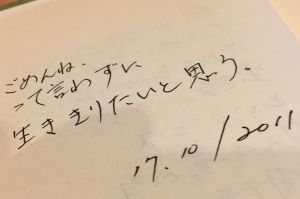 ごめんね、
って言わずに
生ききりたいと思う。
17.10/2011